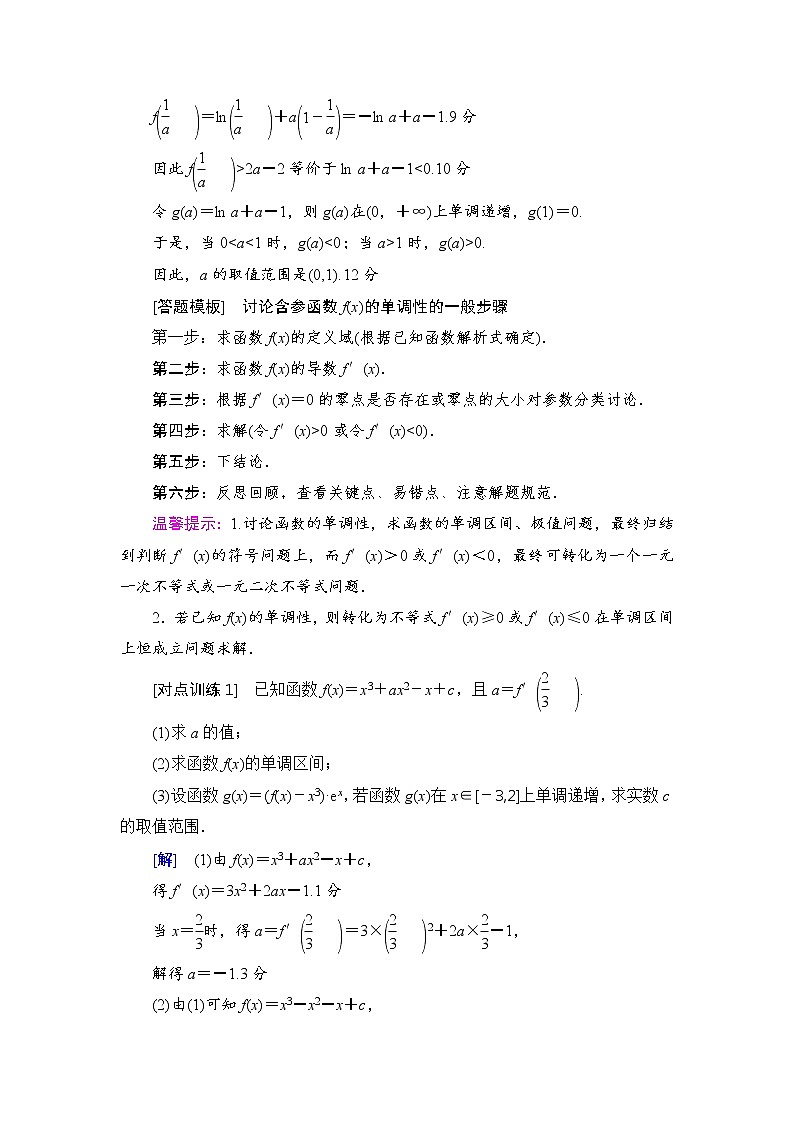 f(1/a)=ln(1/a)+a(1-1/a)=-ln a+a-1.9分
因此f(1/a)>2a-2等价于ln a+a-1<0.10分
令g(a)=ln a+a-1,则g(a)在(0,+∞)上单调递增,g(1)=0.
于是,当0<a<1时,g(a)<0;当a>1时,g(a)>0.
因此,a的取值范围是(0,1).12分
[答题模板] 讨论含参函数f(x)的单调性的一般步骤
第一步:求函数f(x)的定义域(根据已知函数解析式确定).
第二步:求函数f(x)的导数f′(x).
第三步:根据f′(x)=0的零点是否存在或零点的大小对参数分类讨论.
第四步:求解(令f′(x)>0或令f′(x)<0).
第五步:下结论.
第六步:反思回顾,查看关键点、易错点、注意解题规范.
温馨提示:1.讨论函数的单调性,求函数的单调区间、极值问题,最终归结
到判断f′(x)的符号问题上,而f′(x)>0或f′(x)<0,最终可转化为一个一元
一次不等式或一元二次不等式问题.
2.若已知f(x)的单调性,则转化为不等式f′(x)≥0或f′(x)≤0在单调区间
上恒成立问题求解.
[对点训练1] 已知函数f(x)=x³+ax²-x+c,且a=f′(2/3).
(1)求a的值;
(2)求函数f(x)的单调区间;
(3)设函数g(x)=(f(x)-x³)·eˣ,若函数g(x)在x∈[-3,2]上单调递增,求实数c
的取值范围.
[解] (1)由f(x)=x³+ax²-x+c,
得f′(x)=3x²+2ax-1.1分
当x=2/3时,得a=f′(2/3)=3×(2/3)²+2a×2/3-1,
解得a=-1.3分
(2)由(1)可知f(x)=x³-x²-x+c,